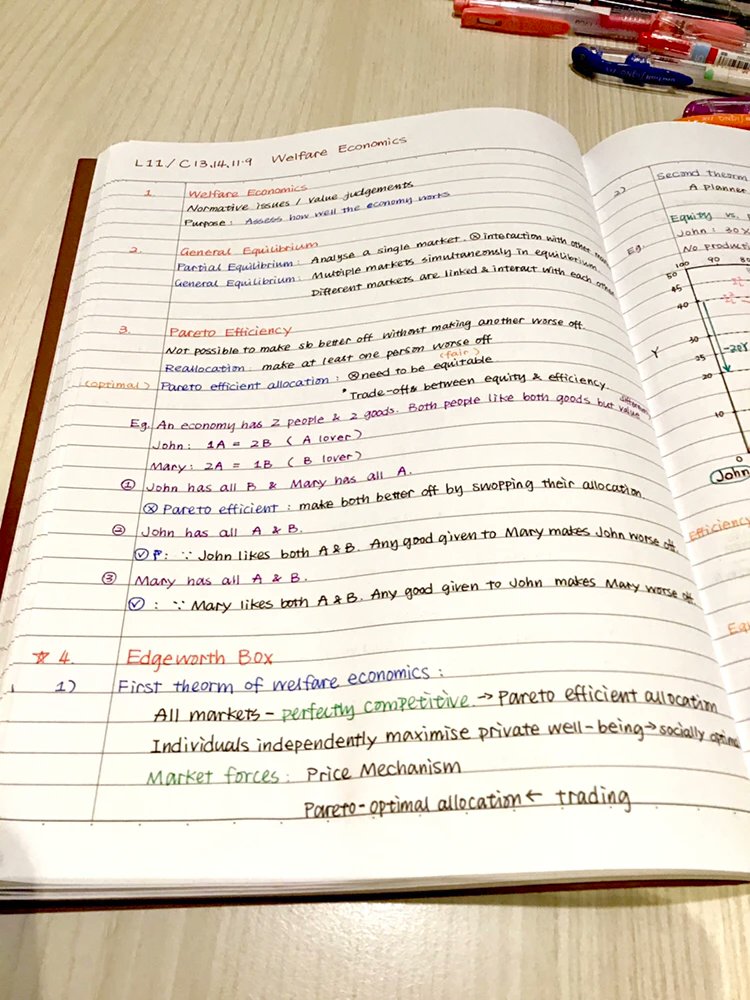 L11 / C13,14,11.9 Welfare Economics
1. Welfare Economics
Normative issues / value judgements
Purpose: Assess how well the economy works
2. General Equilibrium
Partial Equilibrium: Analyse a single market. ⓧ interaction with other
General Equilibrium: Multiple markets simultaneously in equilibrium.
Different markets are linked & interact with each other
3. Pareto Efficiency
Not possible to make sb better off without making another worse off.
Reallocation: make at least one person worse off
(fair)
(optimal) Pareto efficient allocation: ⓧ need to be equitable
* Trade-off between equity & efficiency
Eg. An economy has 2 people & 2 goods. Both people like both goods but value differently
John: 1A = 2B (A lover)
Mary: 2A = 1B (B lover)
① John has all B & Mary has all A.
ⓧ Pareto efficient: make both better off by swopping their allocation.
② John has all A & B.
✓ P: ∵ John likes both A & B. Any good given to Mary makes John worse off.
③ Mary has all A & B.
✓ : ∵ Mary likes both A & B. Any good given to John makes Mary worse off.
☆ 4. Edgeworth Box
1) First theorm of welfare economics:
All markets - perfectly competitive → Pareto efficient allocation
Individuals independently maximise private well-being → socially optimal
Market forces: Price Mechanism
Pareto-optimal allocation ← trading
2) Second theorm
A planner
Equity vs.
Eg. John: 30X
No producti
100 90 80
50
45
40
Y
30
25
20
10
0
-20Y
John
Efficiency
Equ